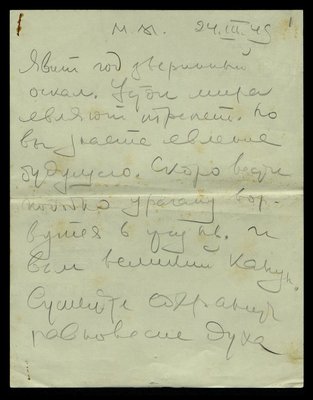 М.М. 24.III.49 1
Явит год звериный
оскал. Устои мира
являют трепет. Но
вы знаете явление
будущего. Скоро вести
подобно урагану вор-
вутся в
Был великий канун.
Сумейте сохранить
равновесие духа